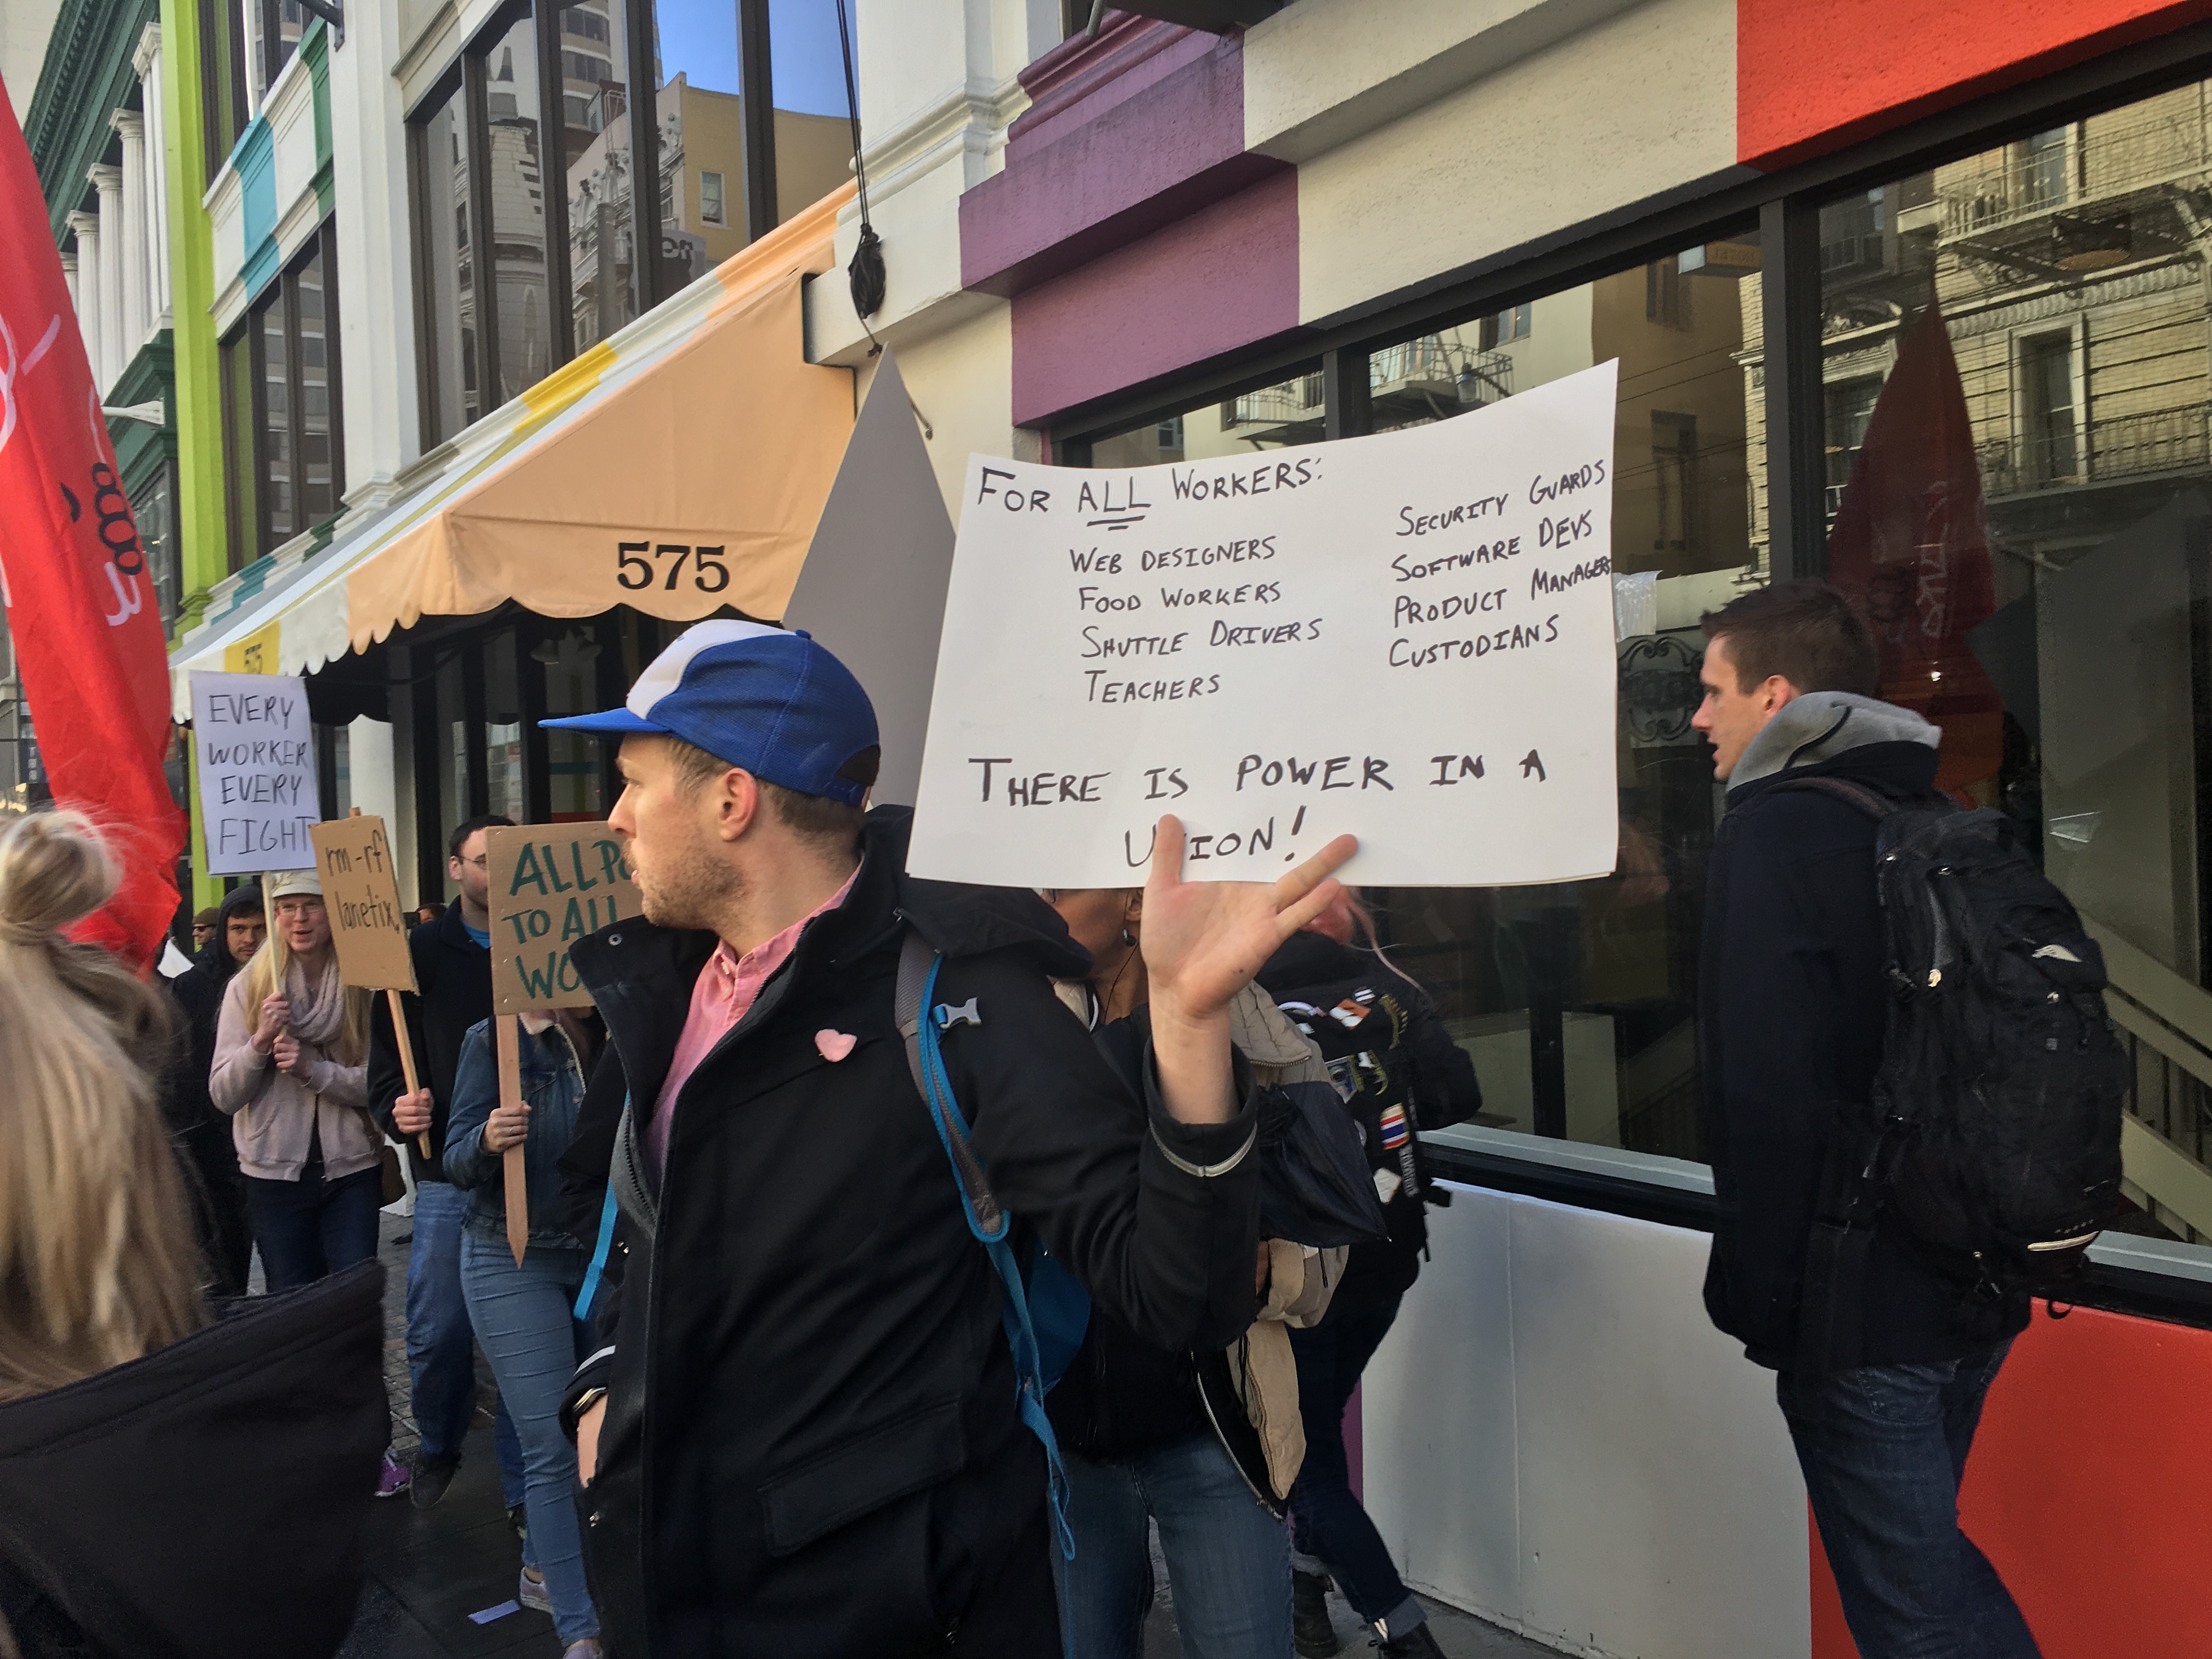 575
575
FOR ALL WORKERS:
WEB DESIGNERS
FOOD WORKERS
SHUTTLE DRIVERS
TEACHERS
SECURITY GUARDS
SOFTWARE DEVS
PRODUCT MANAGERS
CUSTODIANS
THERE IS POWER IN A
UNION!
EVERY
WORKER
EVERY
FIGHT
rm -rf
lanetix
ALL PO
TO ALL
WO